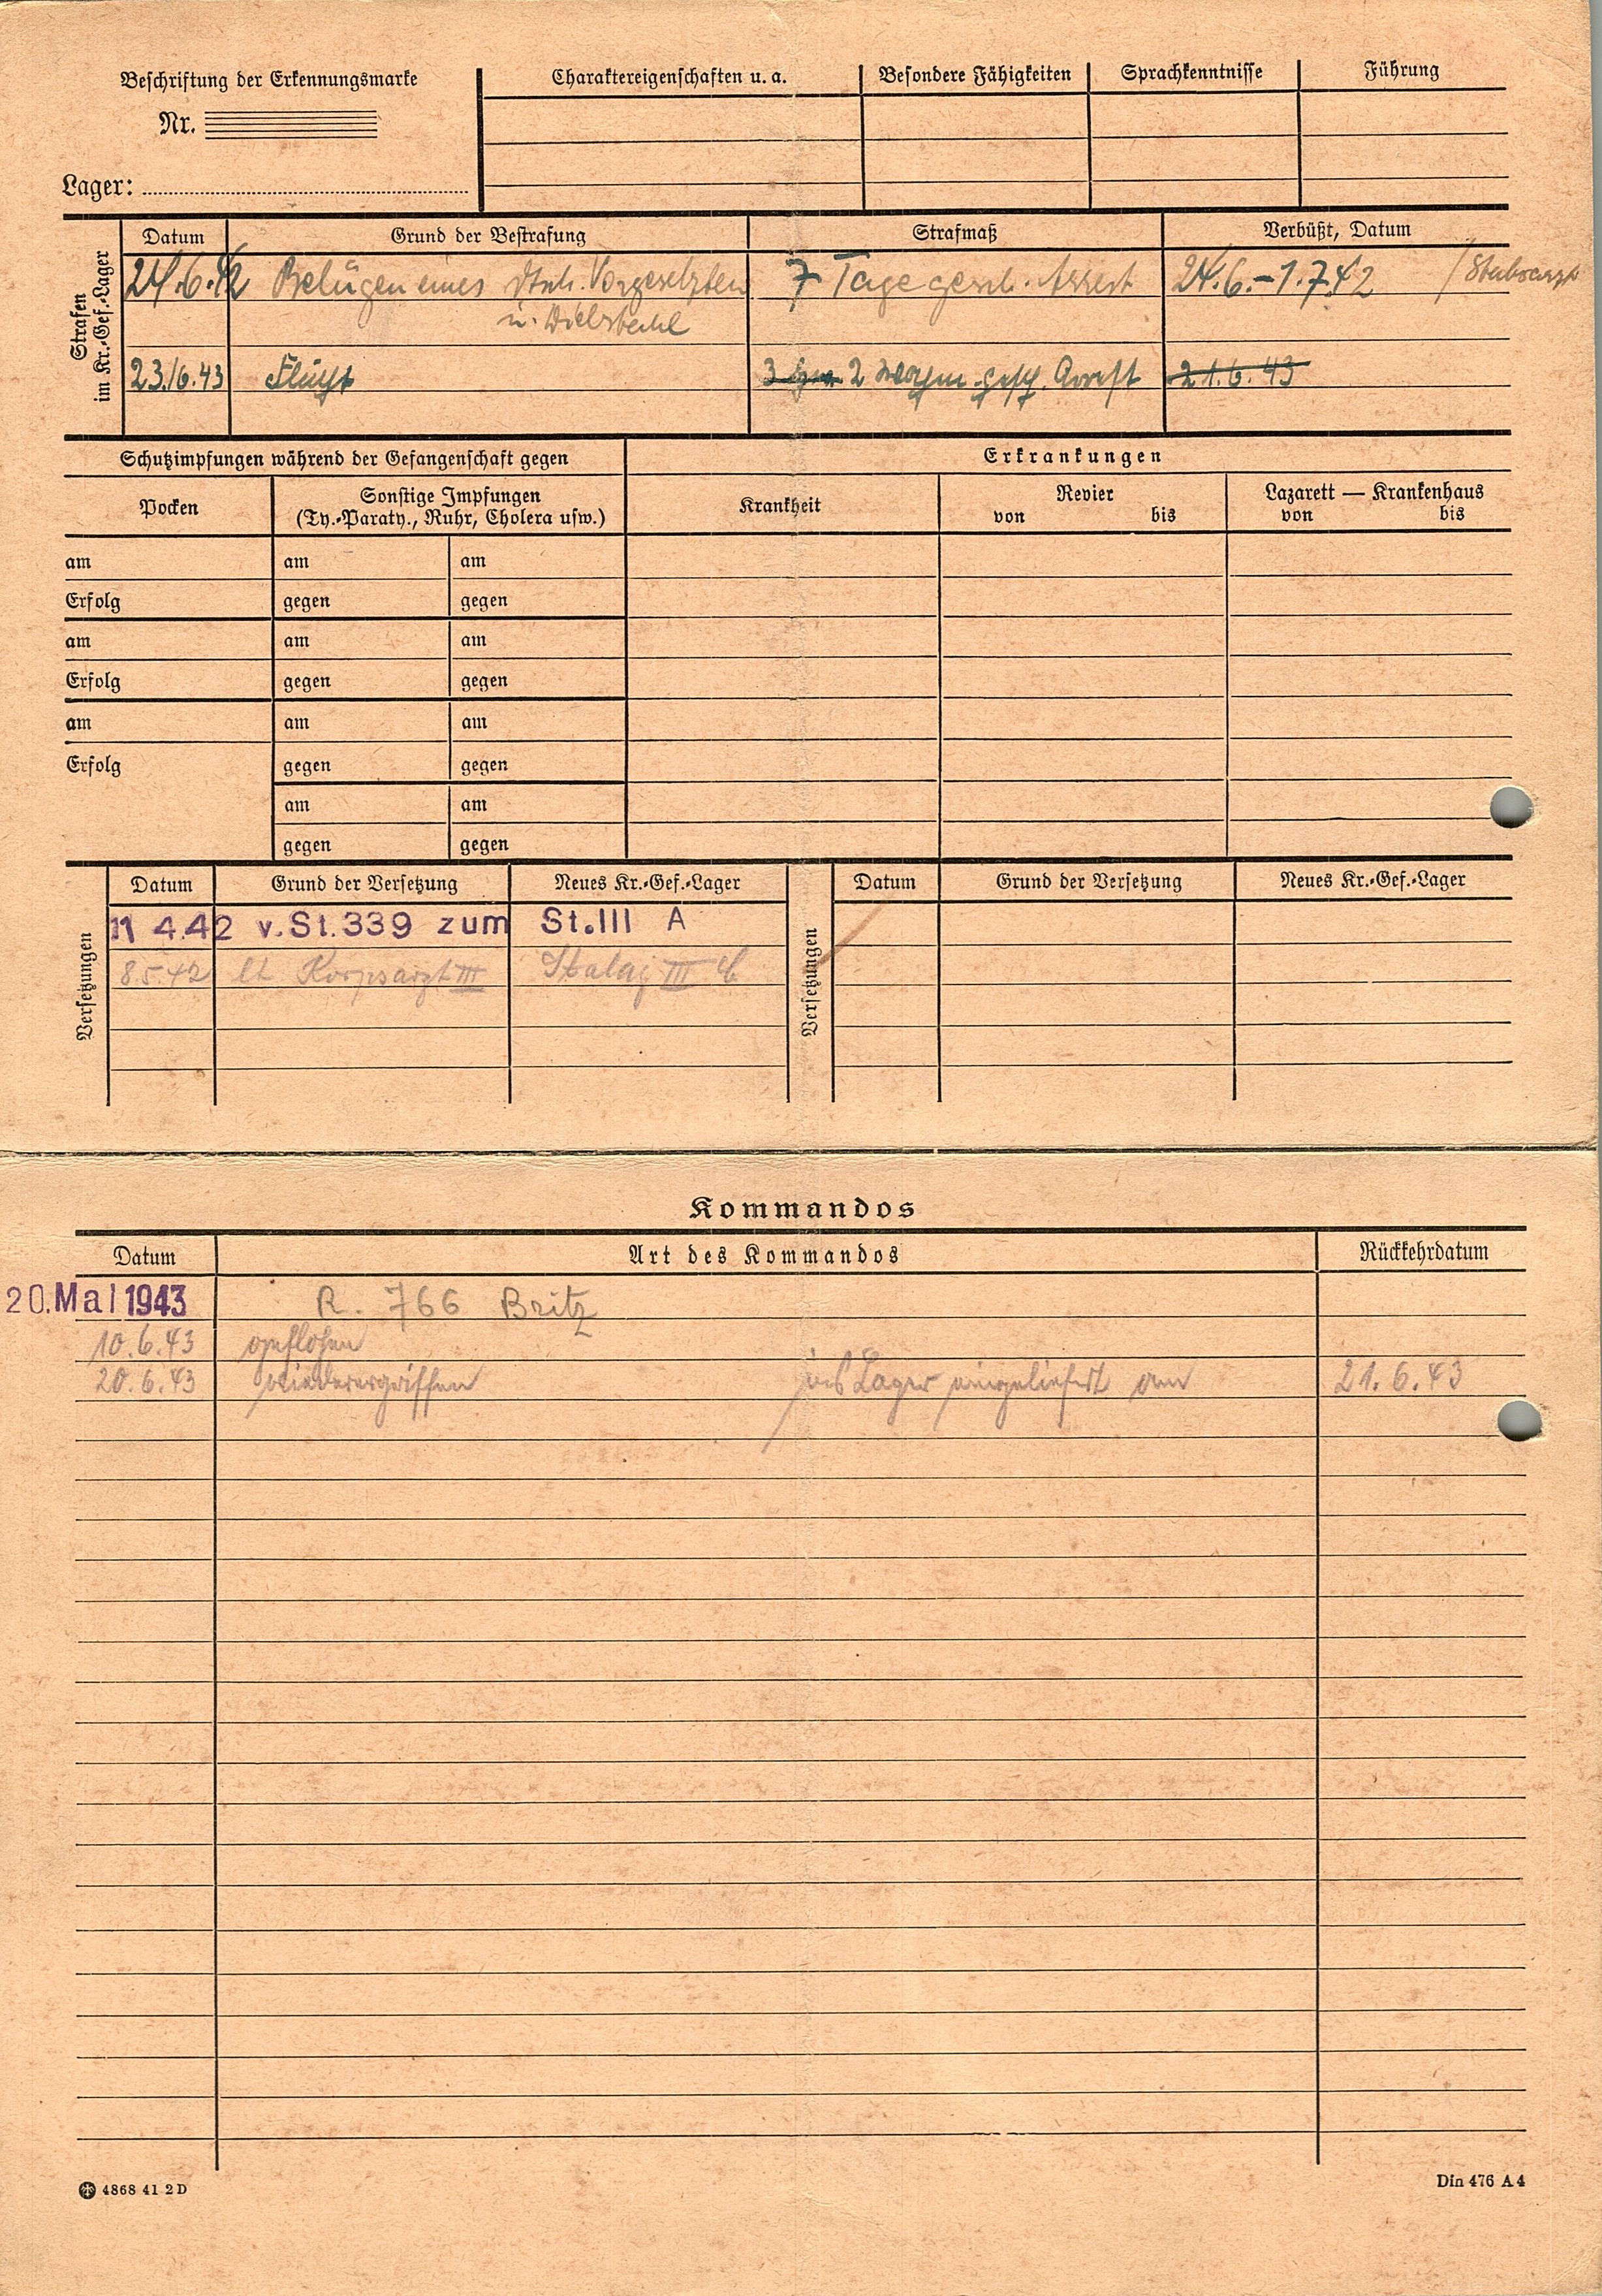 Beschriftung der Erkennungsmarke
Nr.
Lager:
Charaktereigenschaften u. a.
Besondere Fähigkeiten
Sprachkenntnisse
Führung
Strafen
im Kr.-Gef.-Lager
Datum
Grund der Bestrafung
Strafmaß
Verbüßt, Datum
24.6.42 Belügen eines dtsch. Vorgesetzten 7 Tage gesch. Arrest 24.6.-1.7.42 / Stabsarzt
u. Diebstahl
23.6.43 Flucht 2 Wochen gesch. Arrest 21.6.43
Schutzimpfungen während der Gefangenschaft gegen
Erkrankungen
Pocken
Sonstige Impfungen
(Ty.-Paraty., Ruhr, Cholera usw.)
Krankheit
Revier
von bis
Lazarett — Krankenhaus
von bis
am am am
Erfolg gegen gegen
am am am
Erfolg gegen gegen
am am am
Erfolg gegen gegen
am am
gegen gegen
Versetzungen
Datum Grund der Versetzung Neues Kr.-Gef.-Lager
11 4.42 v. St. 339 zum St. III A
8.5.42 lt Korpsarzt III Stalag III
Versetzungen
Datum Grund der Versetzung Neues Kr.-Gef.-Lager
Kommandos
Datum Art des Kommandos Rückkehrdatum
20. Mai 1943 R. 766 Britz
10.6.43 geflohen
20.6.43 wiederergriffen ins Lager eingeliefert am 21.6.43
4868 41 2D
Din 476 A4